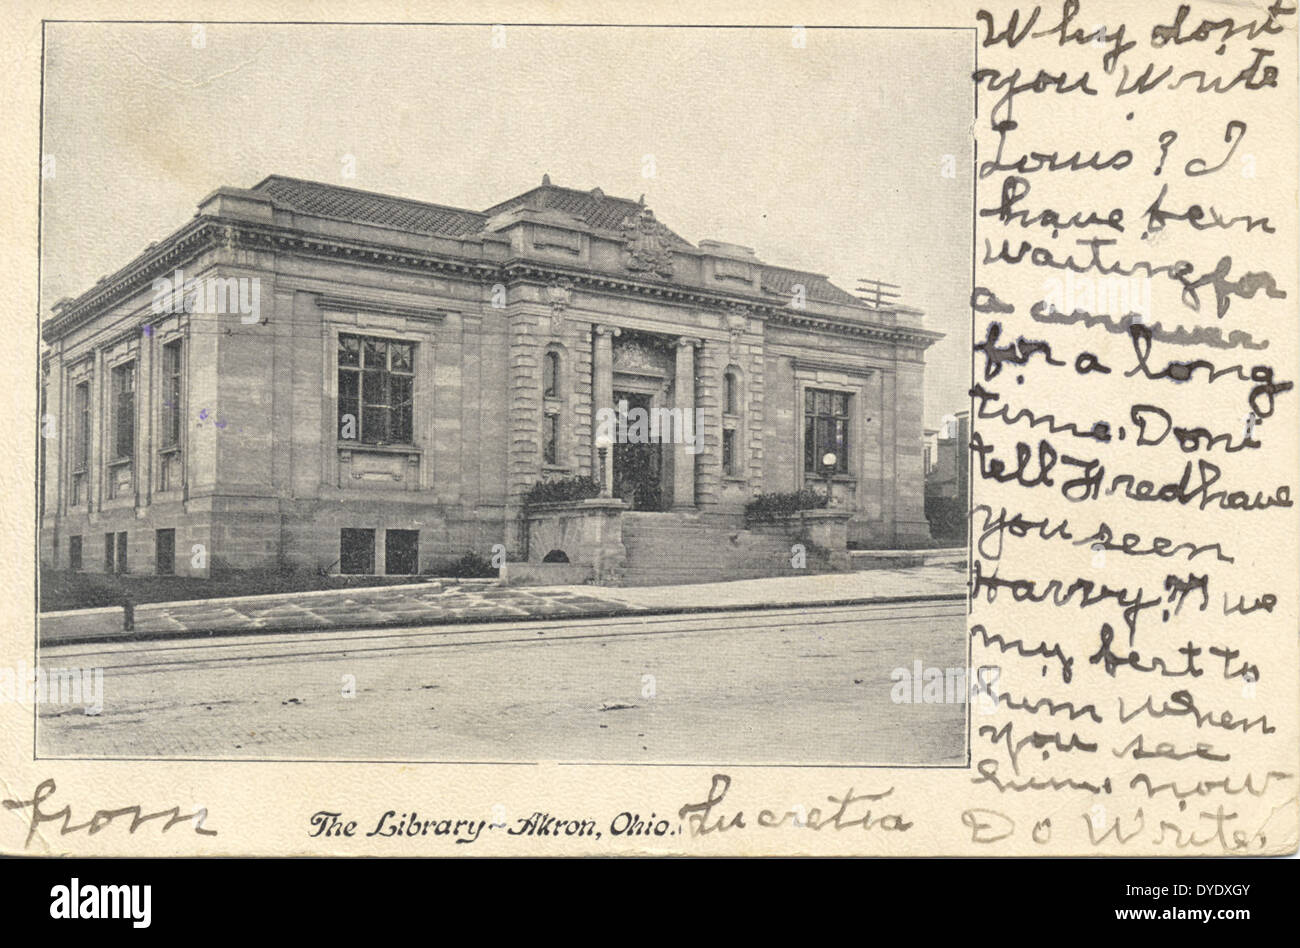 Why dont
you Write
Louis? I
have been
waiting for
a answer
for a long
time. Dont
tell Fred have
you seen
Harry. Give
my best to
him When
you see
him. now
Do Write.
from
The Library - Akron, Ohio.
Lucretia
alamy
Image ID: DYDXGY
www.alamy.com